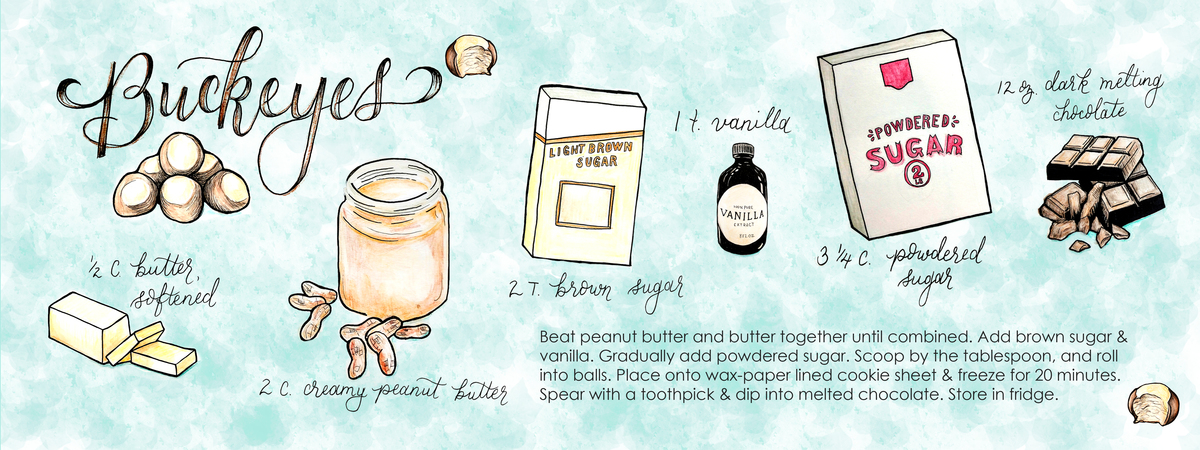 Buckeyes
½ C. butter,
softened
2 C. creamy peanut butter
LIGHT BROWN
SUGAR
2 T. brown sugar
1 t. vanilla
100% PURE
VANILLA
EXTRACT
POWDERED
SUGAR
2
LB
3 ¼ C. powdered
sugar
12 oz. dark melting
chocolate
Beat peanut butter and butter together until combined. Add brown sugar &
vanilla. Gradually add powdered sugar. Scoop by the tablespoon, and roll
into balls. Place onto wax-paper lined cookie sheet & freeze for 20 minutes.
Spear with a toothpick & dip into melted chocolate. Store in fridge.